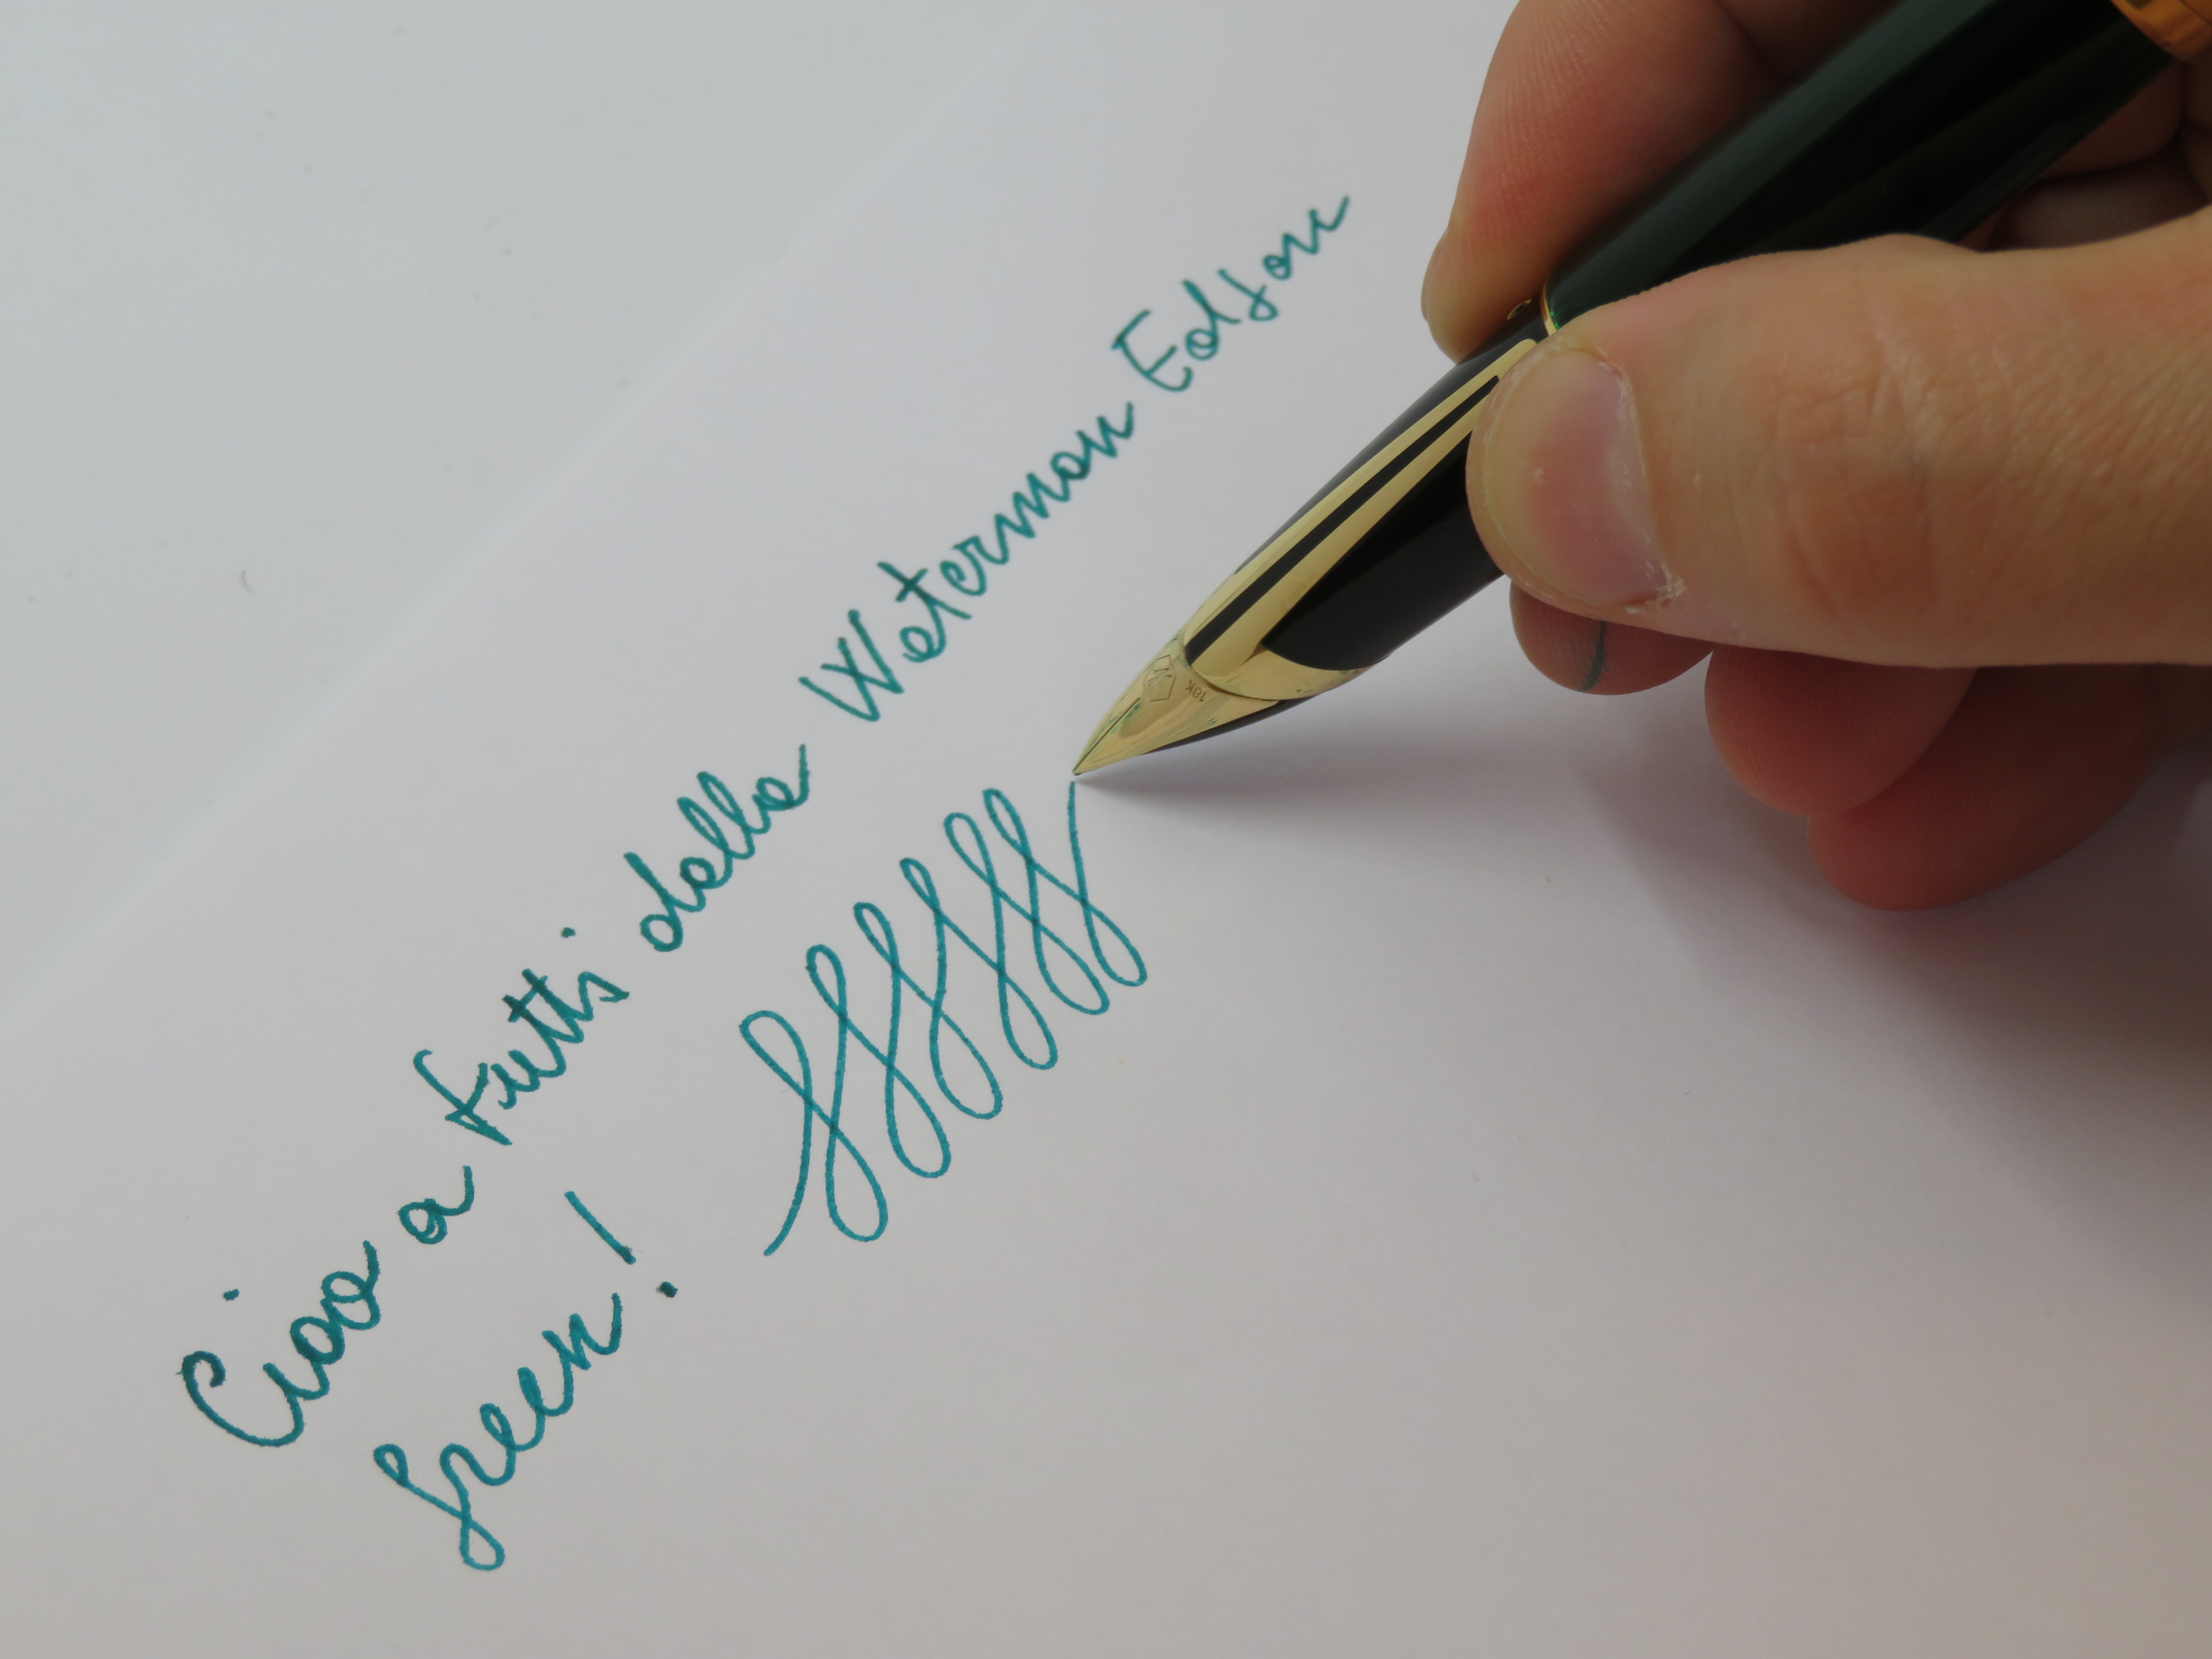 Ciao a tutti dalla Waterman Edson
green!
18K